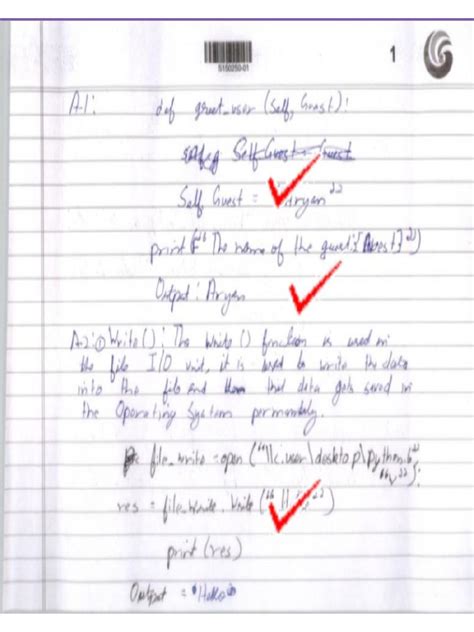 5150250-01
1
A-1: def greet_user (Self, Guest):
Self Guest = Guest
Self Guest = "Aryan"
print (F"The name of the guest: {Guest}")
Output: Aryan
A-2: ① Write(): The Write() function is used in
the file I/O unit, it is used to write the data
into the file and that data gets saved in
the Operating System permanently.
file_write = open ("\\c:user\desktop\python
res = file_write.write ("
print (res)
Output = "Hello"